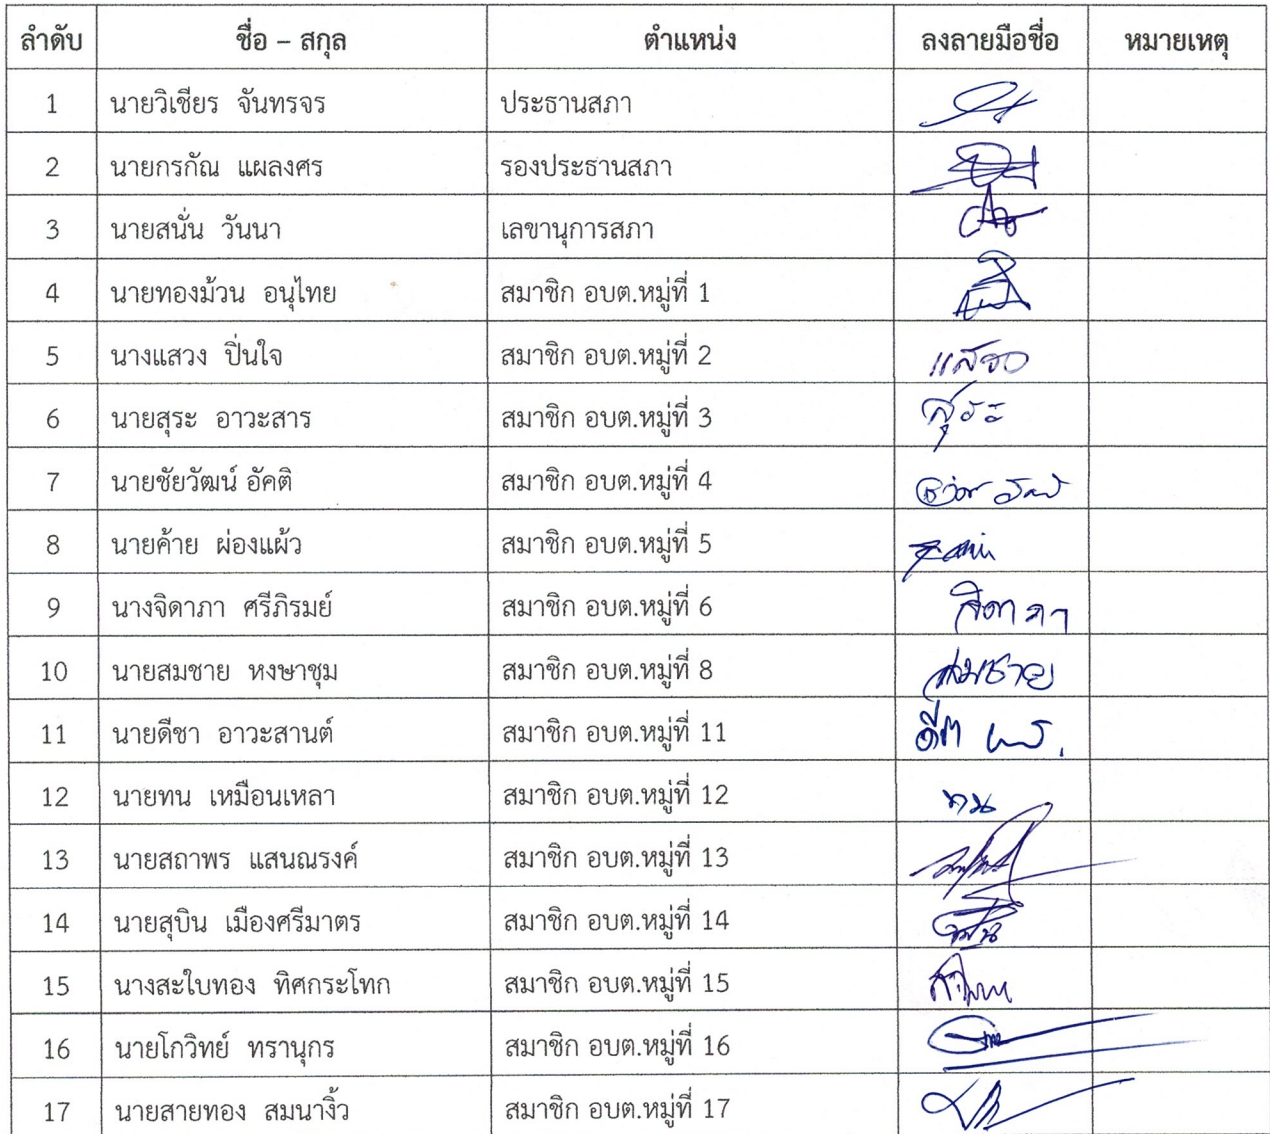 ลำดับ ชื่อ – สกุล ตำแหน่ง ลงลายมือชื่อ หมายเหตุ
1 นายวิเชียร จันทรจร ประธานสภา
2 นายกรกัณ แผลงศร รองประธานสภา
3 นายสนั่น วันนา เลขานุการสภา
4 นายทองม้วน อนุไทย สมาชิก อบต.หมู่ที่ 1
5 นางแสวง ปิ่นใจ สมาชิก อบต.หมู่ที่ 2 แสวง
6 นายสุระ อาวะสาร สมาชิก อบต.หมู่ที่ 3 สุระ
7 นายชัยวัฒน์ อัคติ สมาชิก อบต.หมู่ที่ 4
8 นายค้าย ผ่องแผ้ว สมาชิก อบต.หมู่ที่ 5
9 นางจิดาภา ศรีภิรมย์ สมาชิก อบต.หมู่ที่ 6 จิดาภา
10 นายสมชาย หงษาชุม สมาชิก อบต.หมู่ที่ 8 สมชาย
11 นายดีชา อาวะสานต์ สมาชิก อบต.หมู่ที่ 11
12 นายทน เหมือนเหลา สมาชิก อบต.หมู่ที่ 12 ทน
13 นายสถาพร แสนณรงค์ สมาชิก อบต.หมู่ที่ 13
14 นายสุบิน เมืองศรีมาตร สมาชิก อบต.หมู่ที่ 14
15 นางสะใบทอง ทิศกระโทก สมาชิก อบต.หมู่ที่ 15
16 นายโกวิทย์ ทรานุกร สมาชิก อบต.หมู่ที่ 16
17 นายสายทอง สมนางิ้ว สมาชิก อบต.หมู่ที่ 17